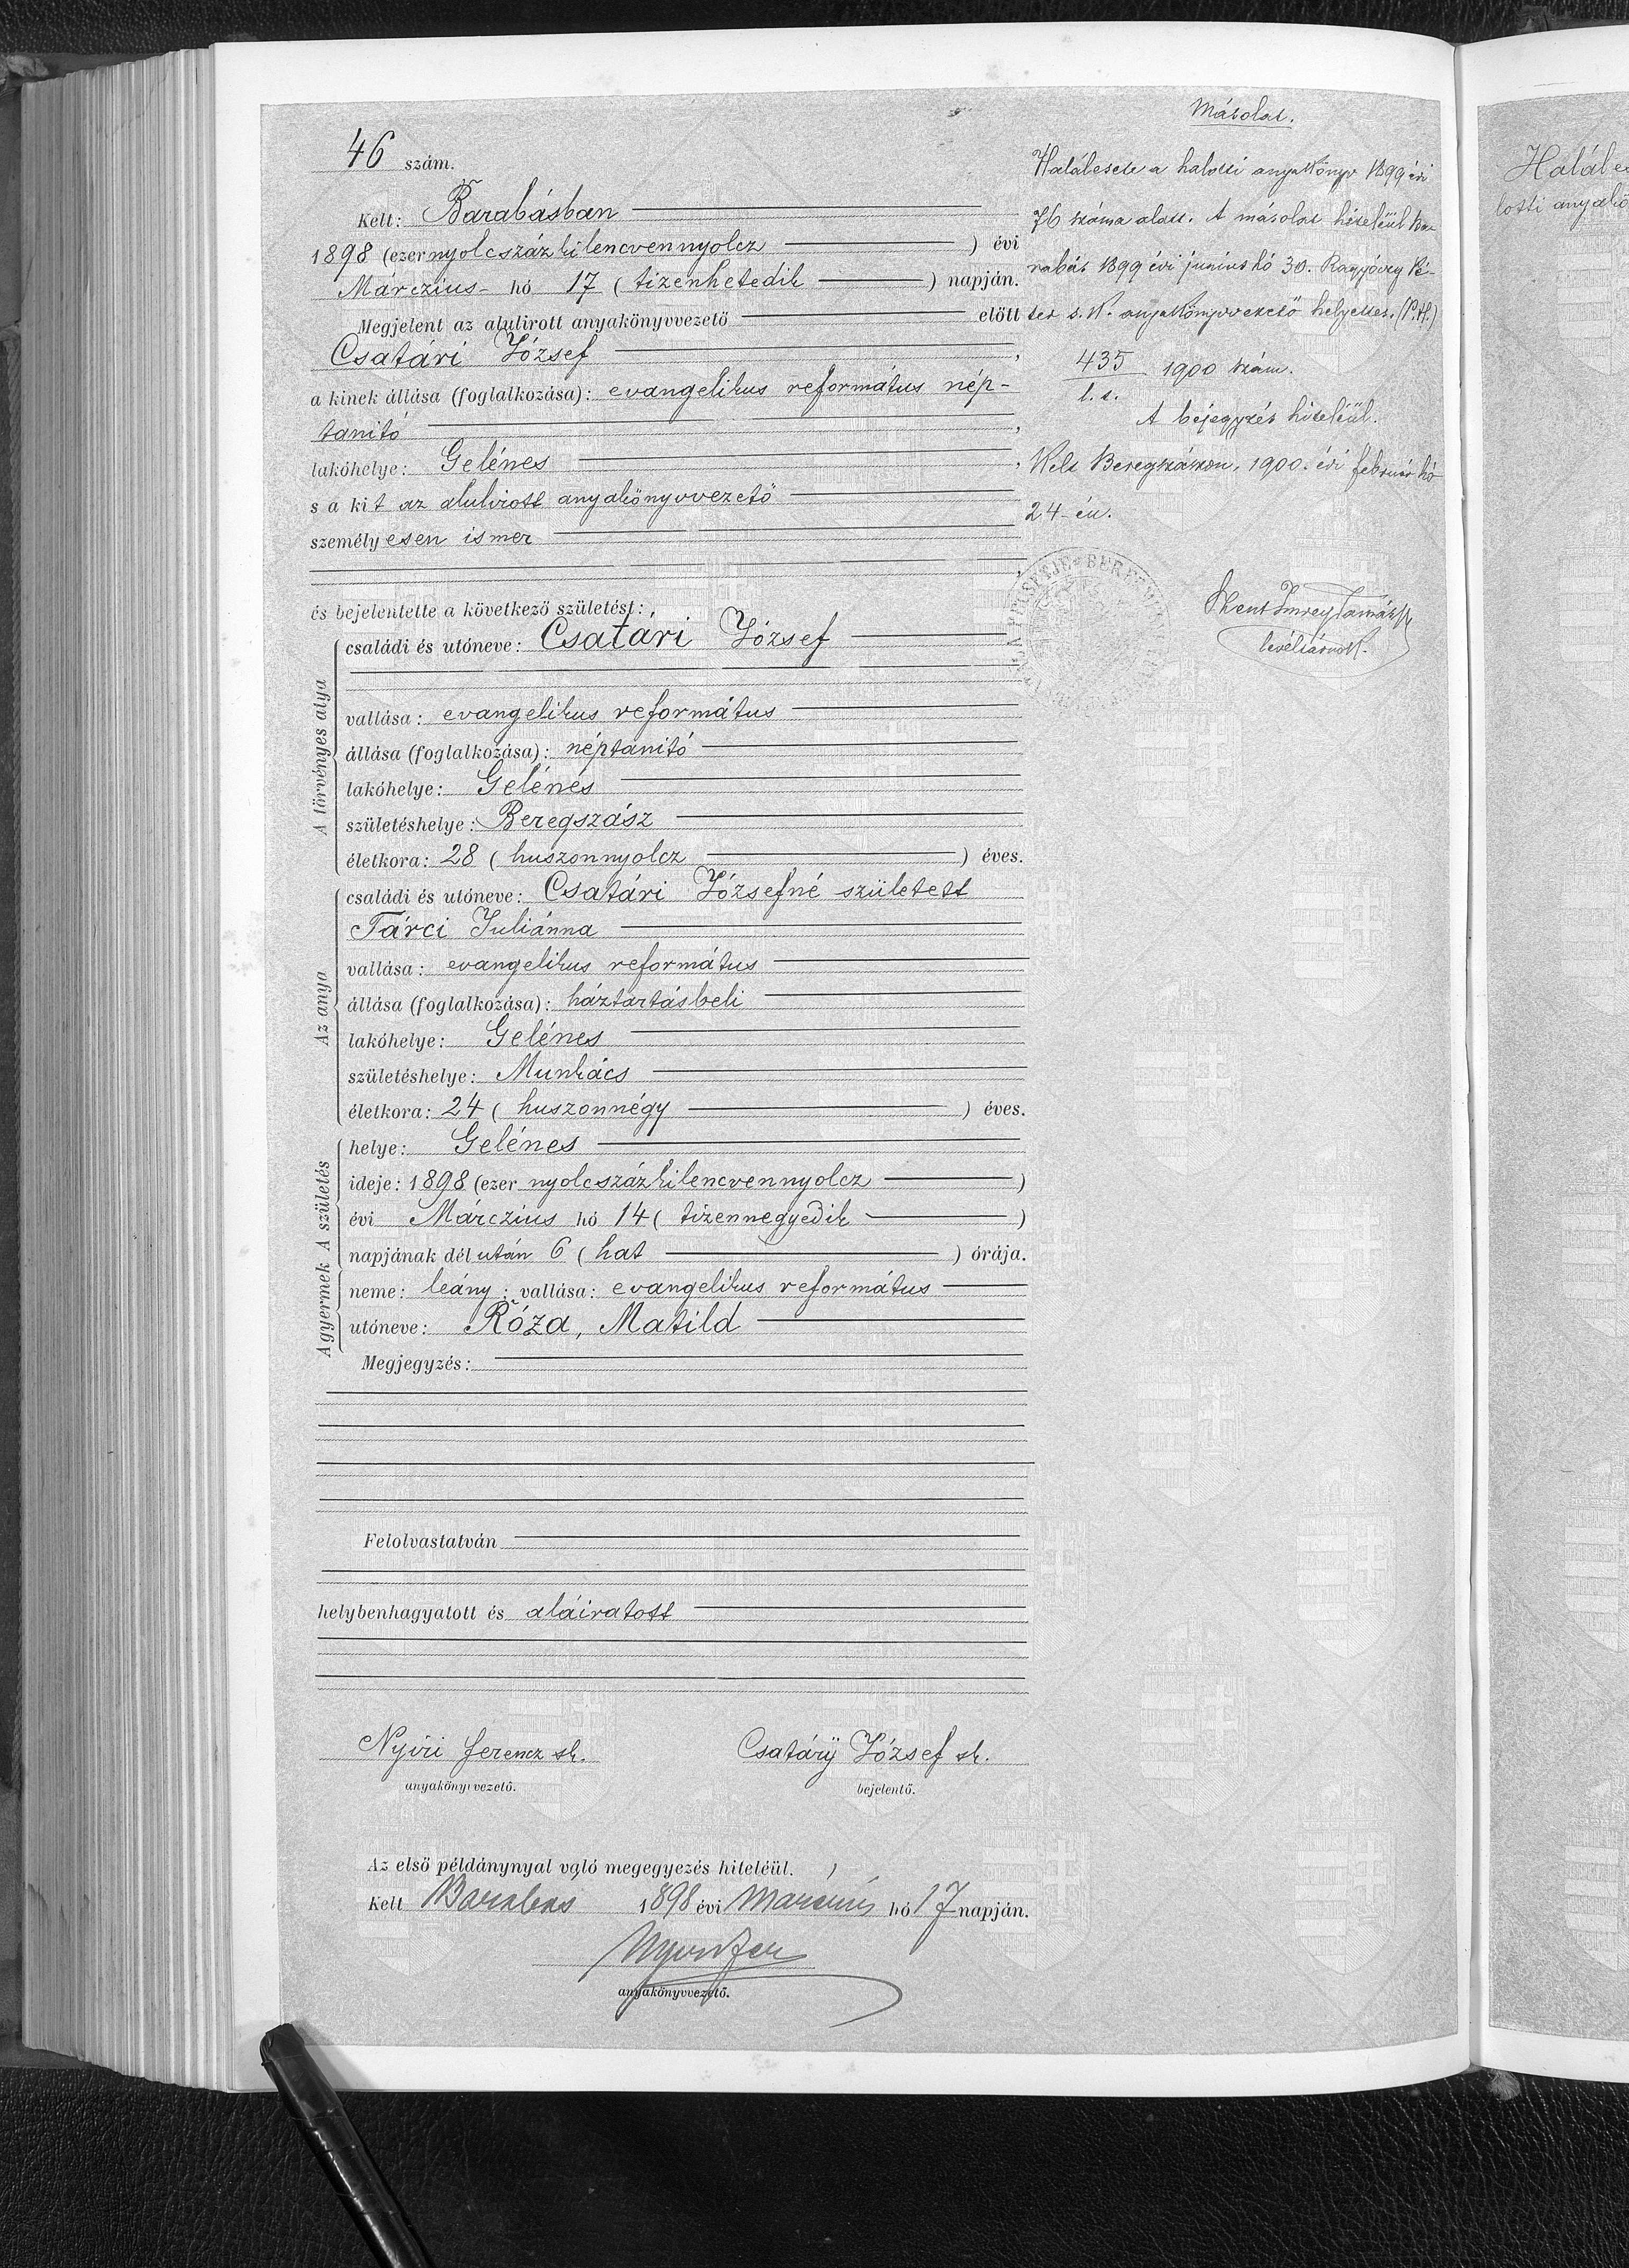 46 szám.
Kelt: Barabásban
1898 (ezernyolcszázkilencvennyolcz ) évi
Márczius hó 17 (tizenhetedik ) napján.
Megjelent az alulirott anyakönyvvezető előtt
Csatári József ,
a kinek állása (foglalkozása): evangelikus református nép-
tanitó ,
lakóhelye: Gelénes ,
s a kit az alulirott anyakönyvvezető
személyesen ismer
,
és bejelentette a következő születést:
A törvényes atya
családi és utóneve: Csatári József
vallása: evangelikus református
állása (foglalkozása): néptanitó
lakóhelye: Gelénes
születéshelye: Beregszász
életkora: 28 (huszonnyolcz ) éves.
Az anya
családi és utóneve: Csatári Józsefné született
Tárci Juliánna
vallása: evangelikus református
állása (foglalkozása): háztartásbeli
lakóhelye: Gelénes
születéshelye: Munkács
életkora: 24 (huszonnégy ) éves.
A születés
helye: Gelénes
ideje: 1898 (ezer nyolcszázkilencvennyolcz )
évi Márczius hó 14 (tizennegyedik )
napjának dél után 6 (hat ) órája.
A gyermek
neme: leány; vallása: evangelikus református
utóneve: Róza, Matild
Megjegyzés:
Felolvastatván
helybenhagyatott és aláiratott
Nyiri Ferencz sk. Csatáry József sk.
anyakönyvvezető. bejelentő.
Az első példánynyal való megegyezés hiteléül.
Kelt Barabás 1898 évi Március hó 17 napján.
anyakönyvvezető.
Másolat.
Halálesete a halotti anyakönyv 1899 évi
76 száma alatt. A másolat hiteléül Ba-
rabás 1899 évi junius hó 30. Ragyóczy Pé-
ter s. k. anyakönyvvezető helyettes. (P.H.)
435 1900 szám.
A bejegyzés hiteléül.
Kelt Beregszászon, 1900. évi február hó
24-én.
levéltárnok.
Halále
lotti anyakö